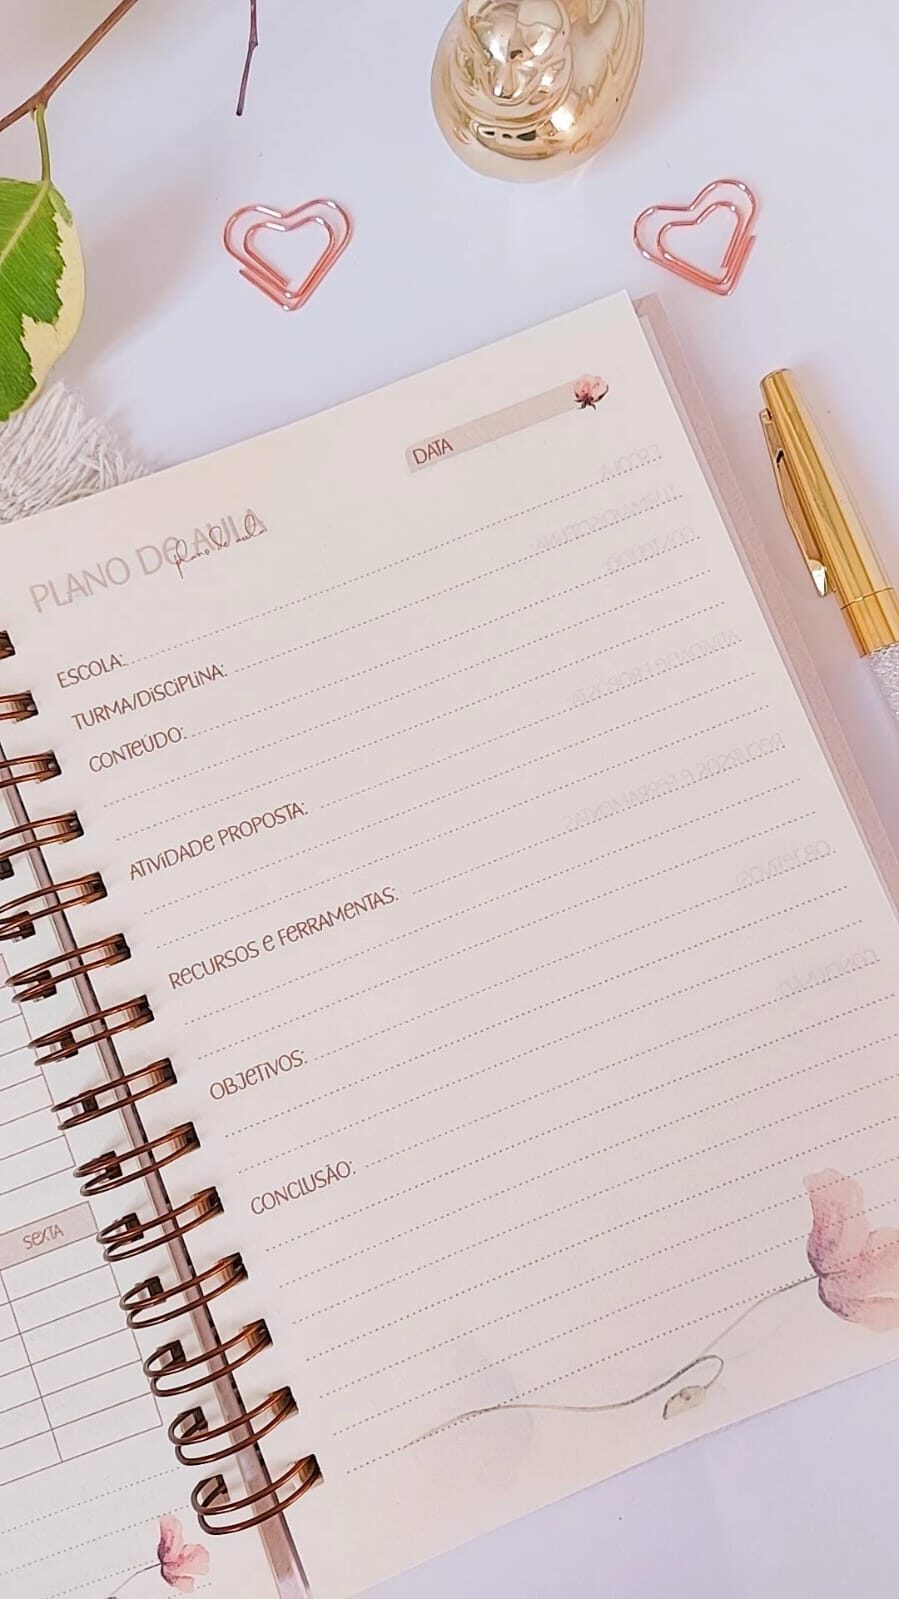 DATA
PLANO DE AULA
plano de aula
ESCOLA:
TURMA/DISCIPLINA:
CONTEÚDO:
ATIVIDADE PROPOSTA:
RECURSOS E FERRAMENTAS:
OBJETIVOS:
CONCLUSÃO:
SEXTA